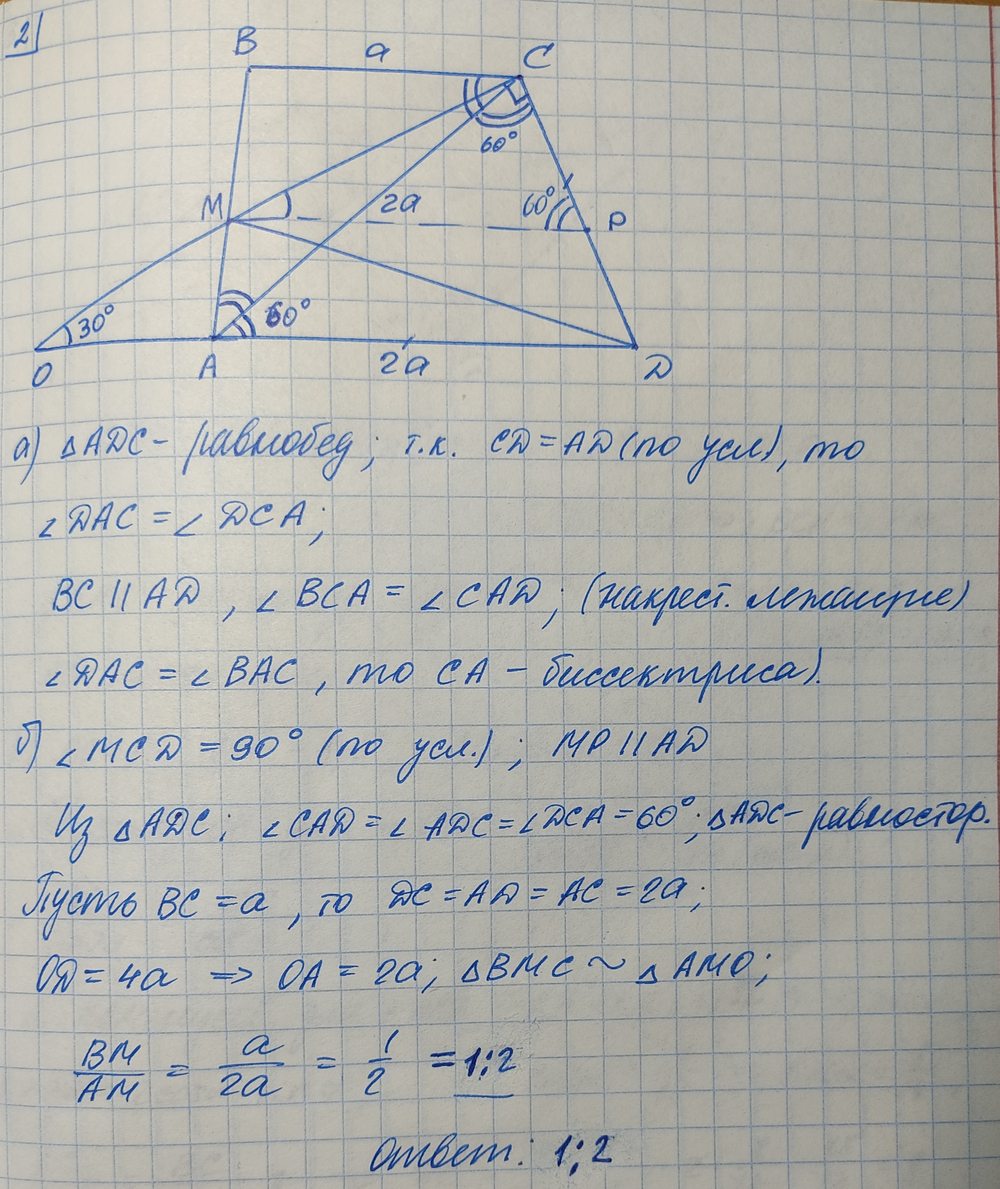 2
B a C
60°
M 2a 60° P
30° 60°
O A 2a D
а) △ADC - равнобед; т.к. CD = AD (по усл), то
∠DAC = ∠DCA;
BC || AD, ∠BCA = ∠CAD; (накрест. лежащие)
∠DAC = ∠BAC, то CA - биссектриса).
б) ∠MCD = 90° (по усл.); MP || AD
Из △ADC; ∠CAD = ∠ADC = ∠DCA = 60°; △ADC - равностор.
Пусть BC = a, то DC = AD = AC = 2a;
OD = 4a => OA = 2a; △BMC ~ △AMO;
BM/AM = a/2a = 1/2 = 1:2
Ответ: 1:2